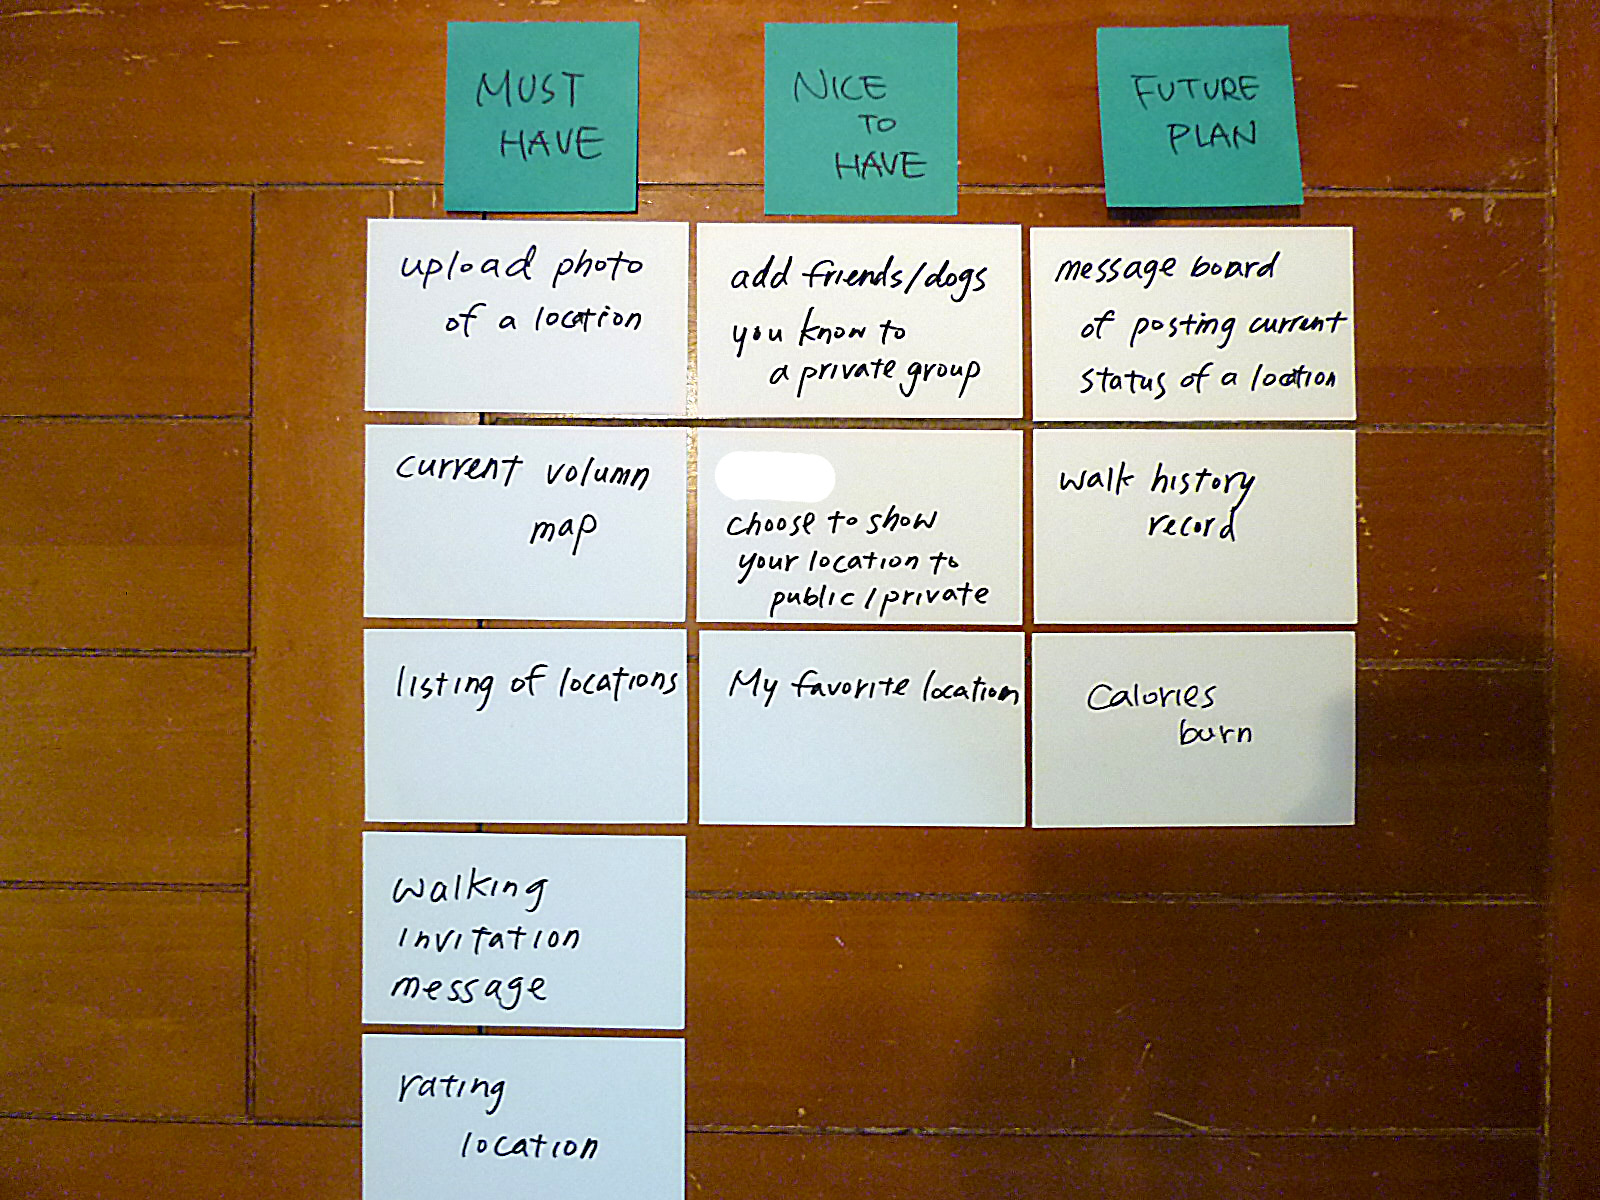 MUST
HAVE
upload photo
of a location
current volumn
map
listing of locations
walking
invitation
message
rating
location
NICE
TO
HAVE
add friends/dogs
you know to
a private group
choose to show
your location to
public/private
My favorite location
FUTURE
PLAN
message board
of posting current
status of a location
walk history
record
Calories
burn